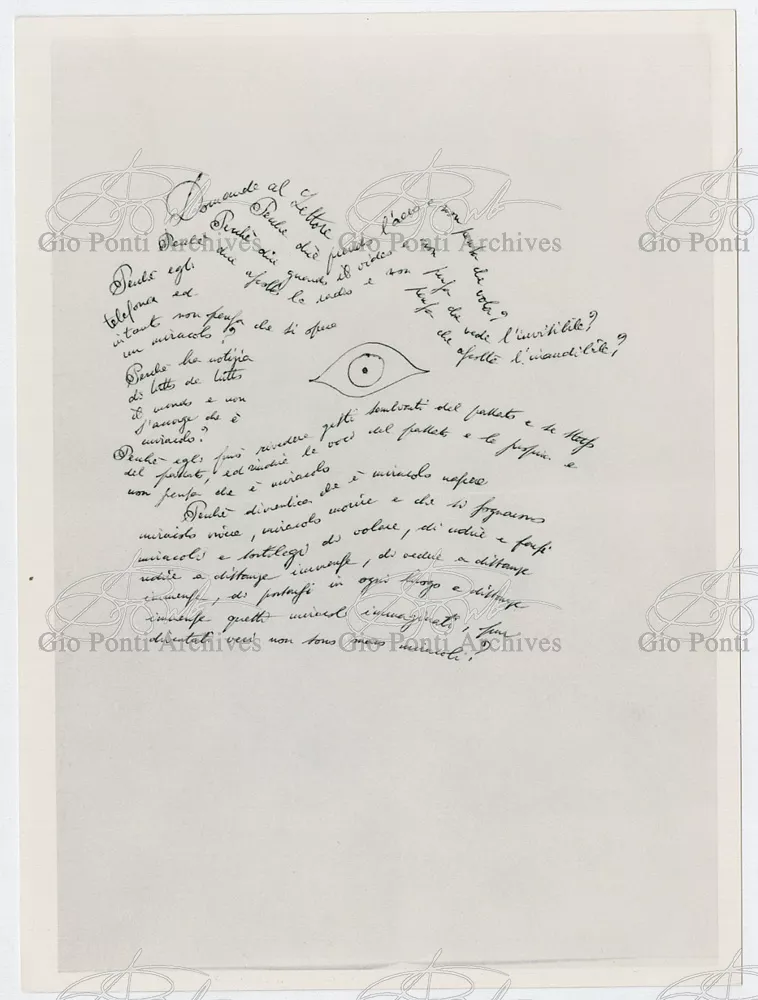 Domande al Lettore
Perchè chi prende l'aereo e non pensa che vola?
Perchè chi guarda il video e non pensa che vede l'invisibile?
Perchè chi ascolta la radio e non pensa che ascolta l'inaudibile?
Perchè egli
telefona ed
intanto non pensa che si opera
un miracolo?
Perchè ha notizia
di tutto da tutto
il mondo e non
s'accorge che è
miracolo?
Perchè egli può rivedere gesti sembianti del passato e se stesso
del passato, ed riudire le voci del passato e la propria e
non pensa che è miracolo
Perchè dimentica che è miracolo nascere
miracolo vivere, miracolo morire e che si sognarono
miracoli e sortilegi di volare, di udire e farsi
udire a distanze immense, di vedere a distanze
immense, di portarsi in ogni luogo a distanze
immense questi miracoli immaginati, pur
diventati veri non sono miracoli?
Gio Ponti Archives
Gio Ponti Archives
Gio Ponti
Gio Ponti Archives
Gio Ponti Archives
Gio Ponti